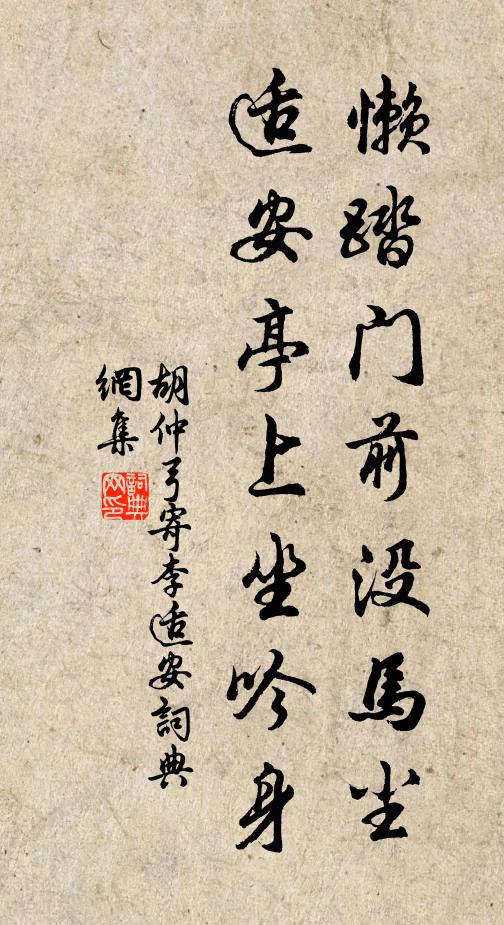 懒踏门前没马尘
适安亭上坐吟身
胡仲弓寄李适安詞典
網集
詞典網印